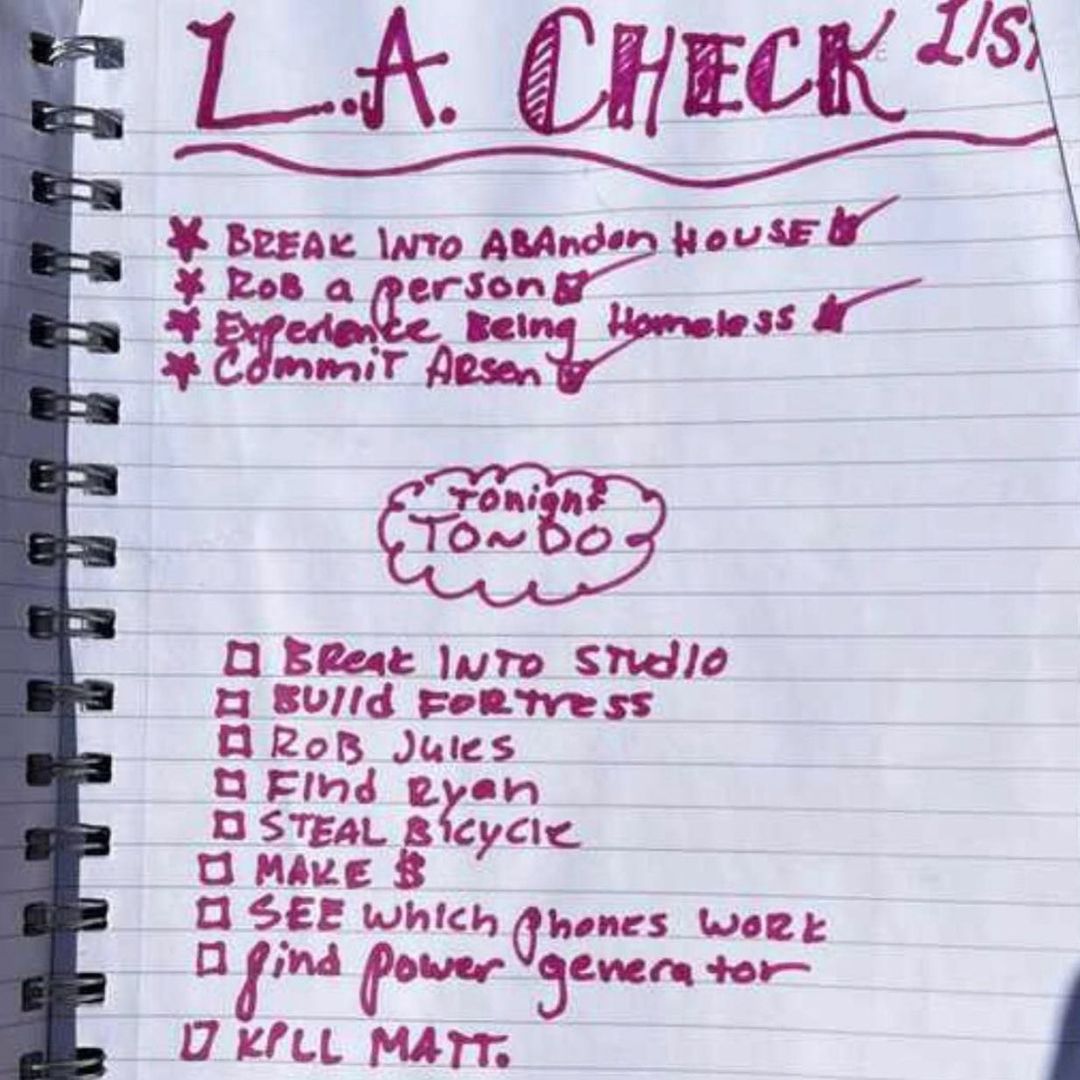 L.A. CHECK LIST
BREAK INTO ABAndon HOUSE
ROB a person
Experience Being Homeless
Commit Arson
Tonight
TO~DO
BReak INTO STudIO
BUIld FORTress
ROB Jules
FInd Ryan
STEAL BIcycle
MAKE $
SEE which phones WORK
find power generator
KPLL MATT.